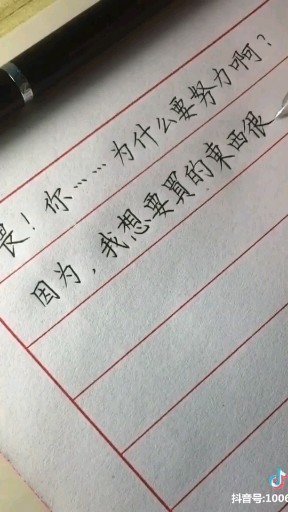 喂！你……为什么要努力啊？
因为，我想要買的東西很
抖音号:1006